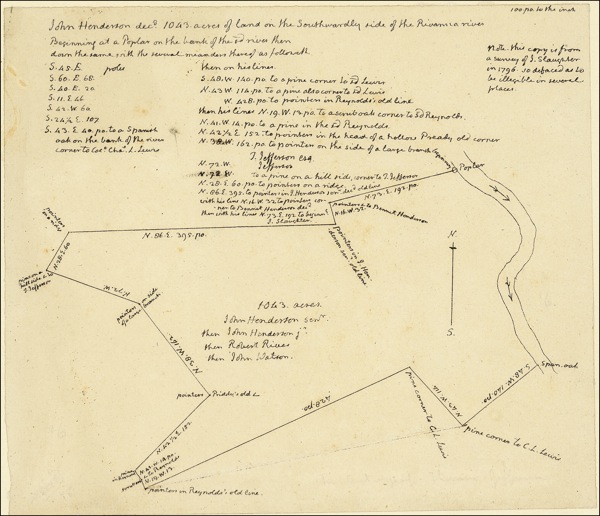 100.po. to the inch
John Henderson dec.d 1043. acres of land on the Southwardly side of the Rivanna river
Beginning at a Poplar on the bank of the sd river then
down the same with the several meanders thereof as followeth
S. 45. E poles
S. 60. E. 68.
S. 40. E. 20
S. 11. E. 46
S. 42. W. 60
S. 24 ½ E. 107
S. 43. E. 40. po. to a Spanish
oak on the bank of the river
corner to Colo. Chas. L. Lewis
then on his lines.
S. 48. W. 140. po. to a pine corner to sd Lewis
N. 43 W. 114. po. to a pine also corner to sd Lewis
W. 428. po. to pointers in Reynolds's old line
then his lines N. 19. W. 13. po. to a scrub oak corner to sd Reynolds.
N. 41. W. 14. po. to a pine in the sd Reynolds.
N. 42 ½ E. 152. to pointers in the head of a hollow Preddy's old corner
N. 38. W. 162. po. to pointers on the side of a large branch
T. Jefferson esq.
N. 72. W. Jefferson
N. 72. W to a pine on a hill side, corner to T. Jefferson
N. 28. E. 60. po. to pointers on a ridge
N. 86. E. 395. to pointers in J. Henderson senr. dec.d old line
with his line N. 16. W. 32. to pointers corner
to Bennet Henderson dec.d
then with his lines N. 73. E. 192 to the beginning
J. Slaughter.
Note. this copy is from
a survey of J. Slaughter
in 1796. so defaced as to
be illegible in several
places.
Beginning Poplar
N. 73. E. 192. po.
pointers to Bennet Henderson
N. 16. W. 32.
pointers in J. Henderson
senr's. old line
pointers
on a ridge
N. 86. E. 395. po.
N. 28. E. 60
pine on a
hill side c. to
T. Jefferson
N. 72. W.
pointers on side
of a large branch
N.
S.
1043. acres.
John Henderson senr.
then John Henderson jr.
then Robert Rives
then John Watson.
N. 38. W. 162
pointers Priddy's old c.
N. 42 ½ E. 152.
428. po.
pine corner to C. L. Lewis
N. 43. W. 114
S. 48. W. 140. po.
Span. oak
pine corner to C. L. Lewis
N. 41. W. 14. po.
N. 19. W. 13.
pointers in Reynolds's old line.